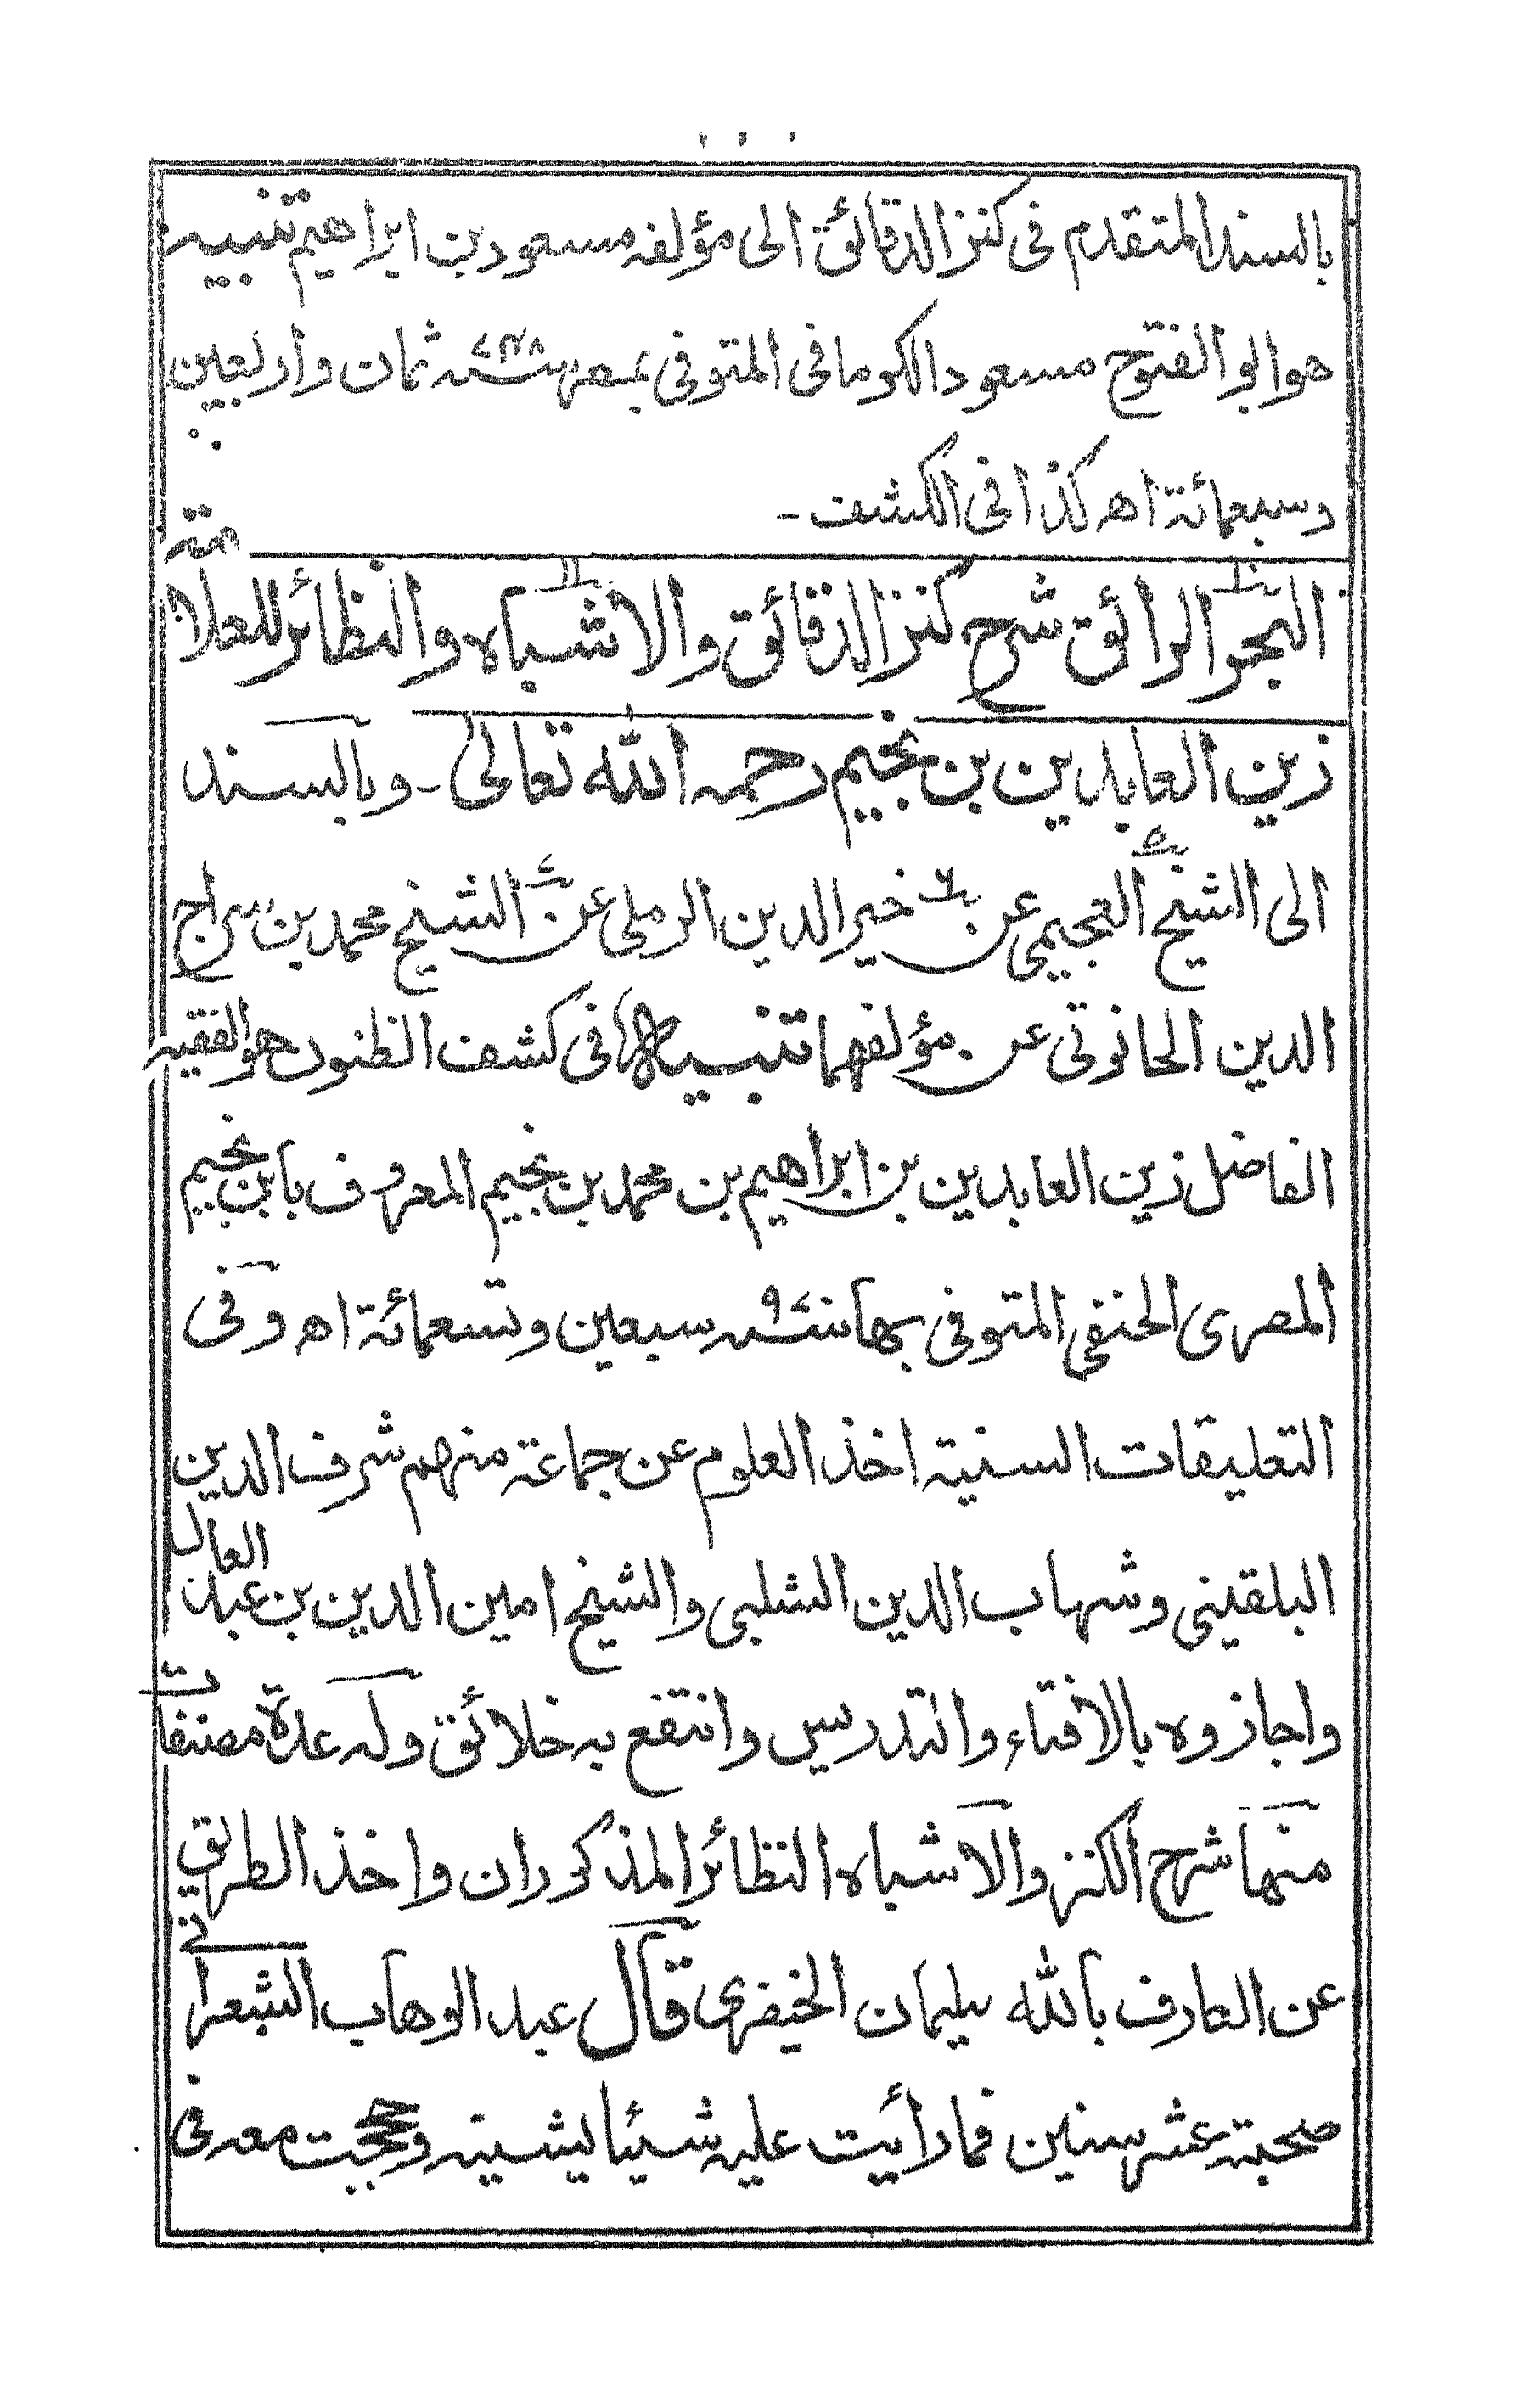 بالسند المتقدم فى كنز الدقائق الى مؤلفه مسعود بن ابراهيم تنبيه
هو ابو الفتوح مسعود الكرمانى المتوفى بمصر سنة ٧٤٨ ثمان واربعين
وسبعمائة اهـ كذا فى الكشف -
البحر الرائق شرح كنز الدقائق والاشباه والنظائر للعلامة
زين العابدين بن نجيم رحمه الله تعالى - وبالسند
الى الشيخ العجيمى عن خير الدين الرملى عن الشيخ محمد بن سراج
الدين الحانوتى عن مؤلفهما تنبيه فى كشف الظنون هو الفقيه
الفاضل زين العابدين بن ابراهيم بن محمد بن نجيم المعروف بابن نجيم
المصرى الحنفى المتوفى بها سنة ٩٧٠ سبعين وتسعمائة اهـ وفى
التعليقات السنية اخذ العلوم عن جماعة منهم شرف الدين
البلقينى وشهاب الدين الشلبى والشيخ امين الدين بن عبد العال
واجازوه بالافتاء والتدريس وانتفع به خلائق وله عدة مصنفات
منها شرح الكنز والاشباه النظائر المذكوران واخذ الطريق
عن العارف بالله سليمان الخيضرى قال عبد الوهاب الشعرانى
صحبته عشر سنين فما رأيت عليه شيئا يشينه وحججت معه فى